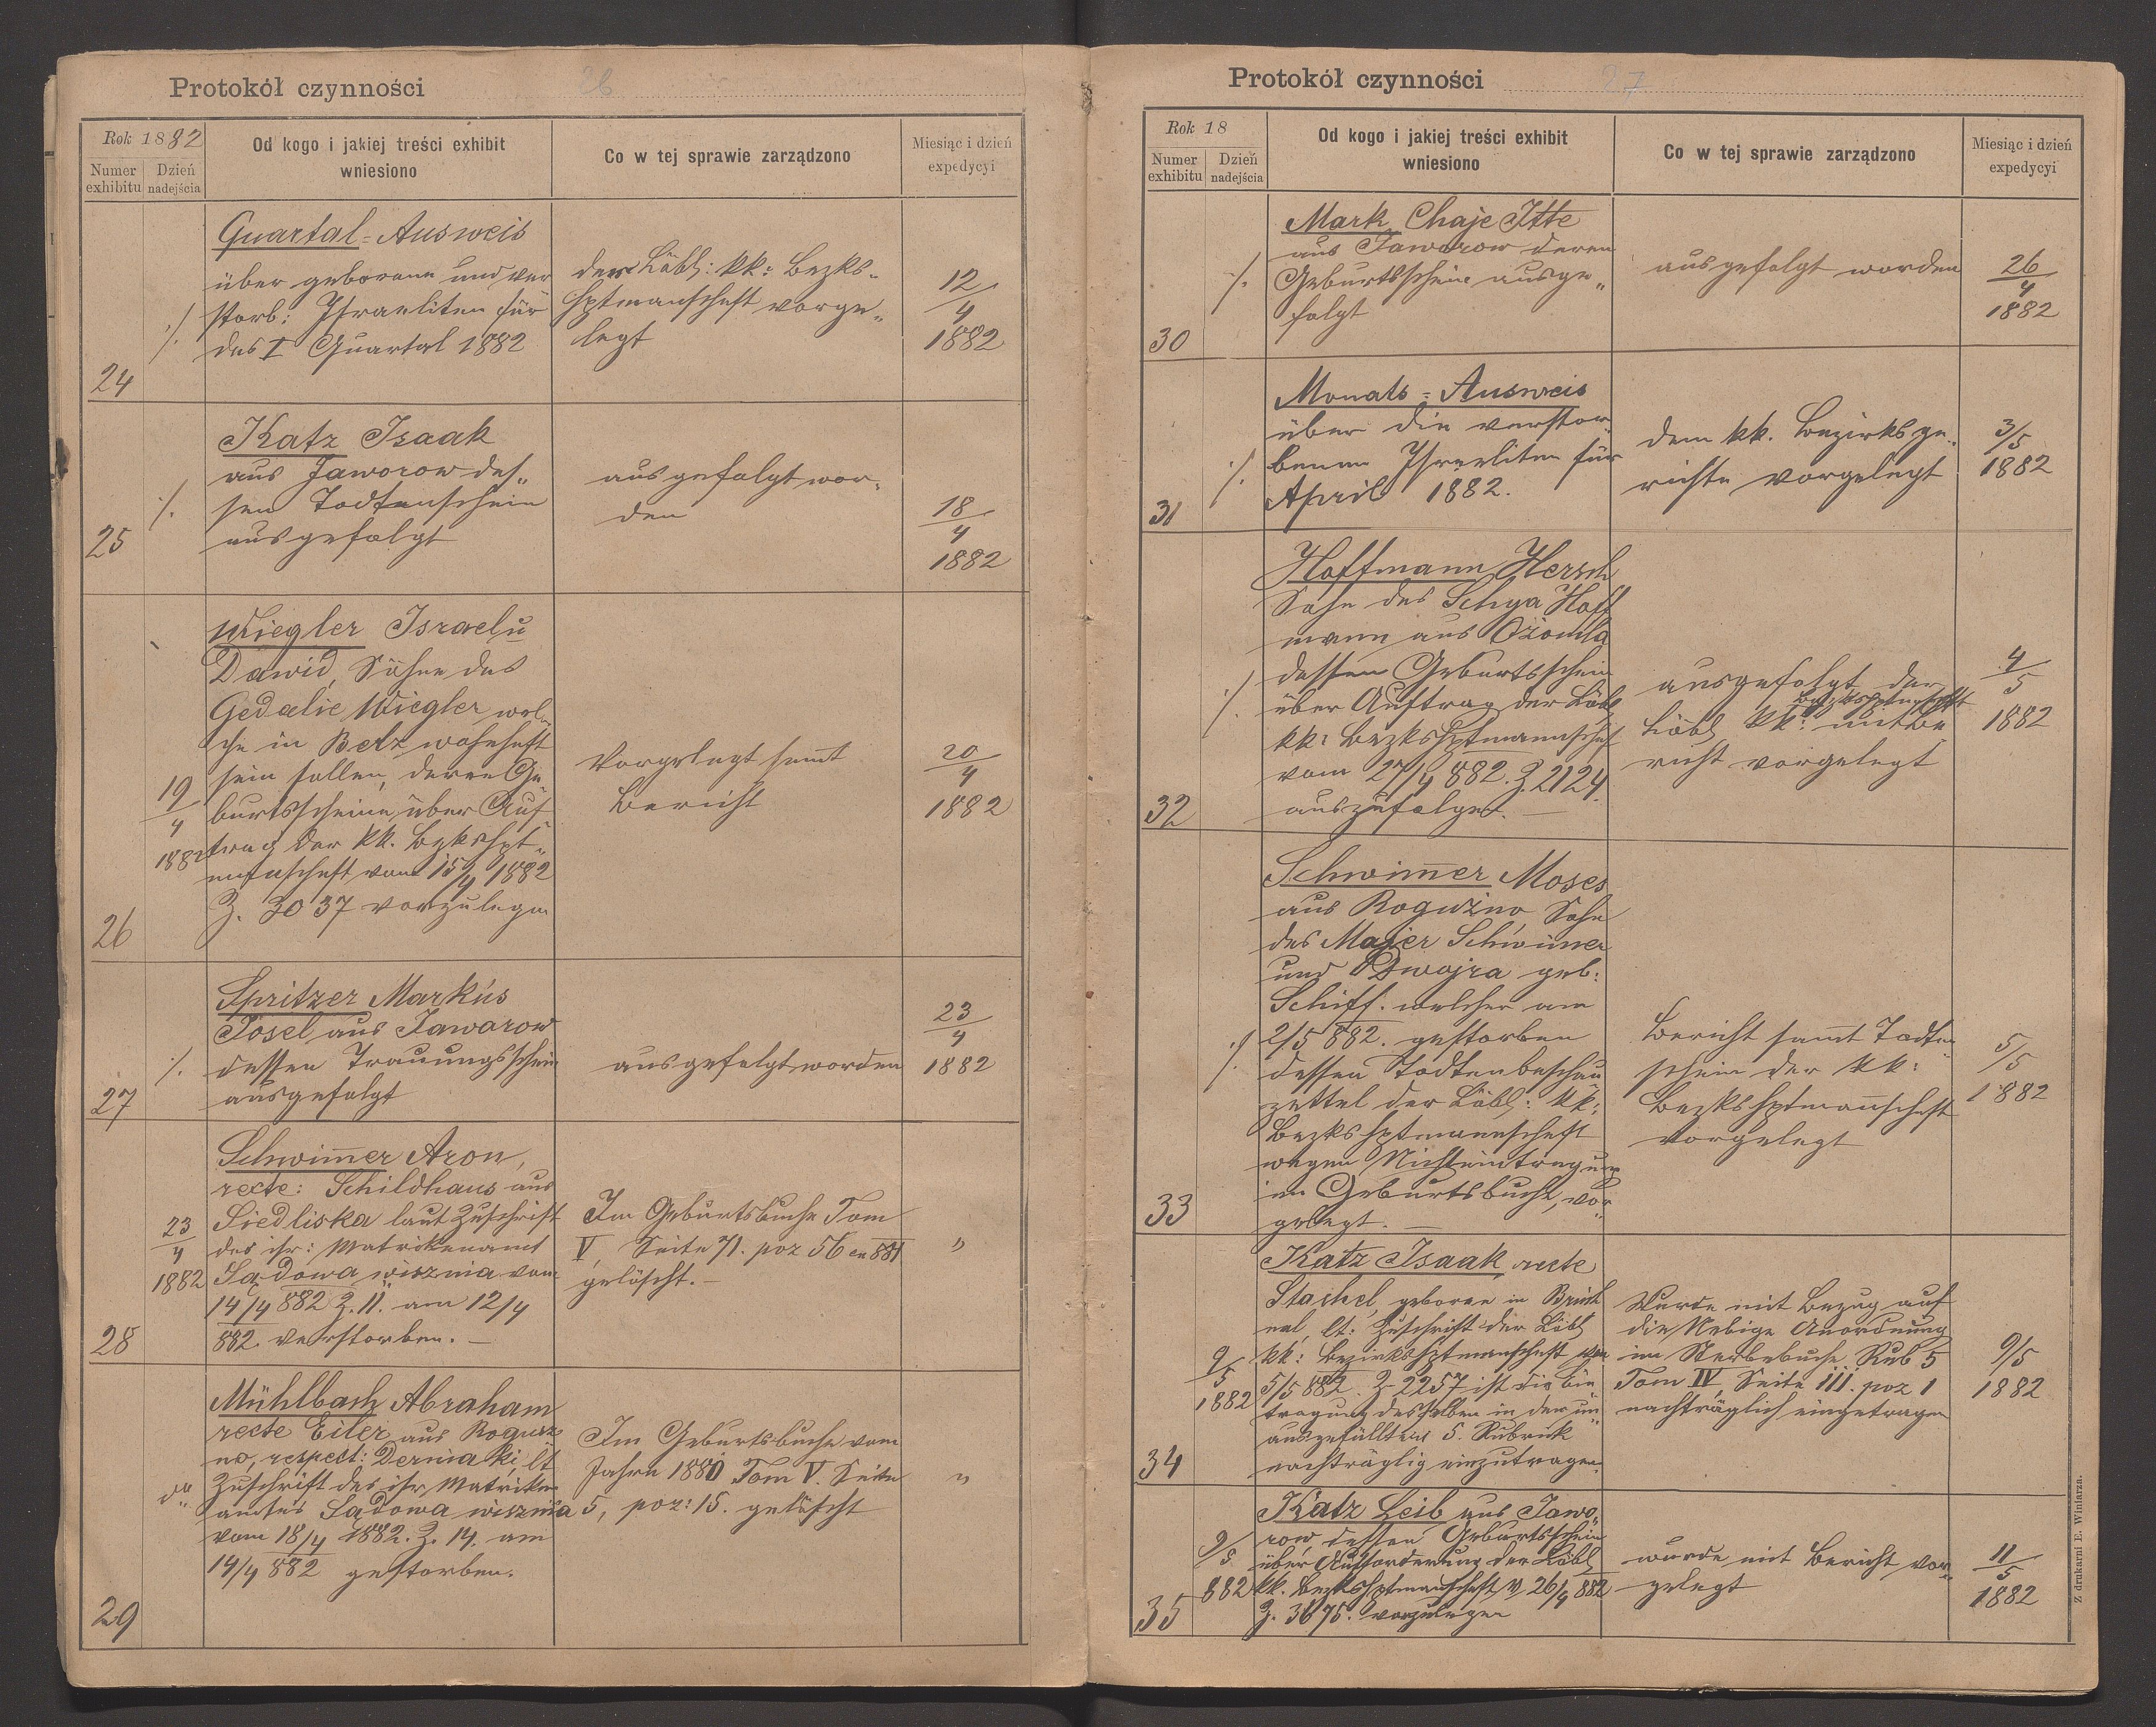 Protokół czynności 26
Rok 1882
Numer exhibitu
Dzień nadejścia
Od kogo i jakiej treści exhibit wniesiono
Co w tej sprawie zarządzono
Miesiąc i dzień expedycyi
24
./.
Quartal-Ausweis
über geborene und ver
storb: Israeliten für
das I Quartal 1882
der Löbl: kk: Bezks-
hptmanschaft vorge„
legt
12/4
1882
25
./.
Katz Isaak
aus Jaworow des„
sen Todtenschein
ausgefolgt
ausgefolgt wor„
den
18/4
1882
26
19/4
1882
Wiegler Israel u
Dawid, Söhne des
Gedalie Wiegler wel„
che in Betz wohnhaft
sein sollen, deren Ge
burtsscheine über Auf„
trag der kk. Bzkshpt„
manschaft vom 15/4 1882
Z. 3037 vorzulegen
Vorgelegt samt
Bericht
20/4
1882
27
./.
Spritzer Markus
Josel aus Jaworow
dessen Trauungsschein
ausgefolgt
ausgefolgt worden
23/4
1882
28
23/4
1882
Schwim̅er Aron,
recte: Schildhaus aus
Siedliska laut Zuschrift
des isr: Matrikenamt
Sądowa wisznia vom
14/4 882 Z. 11. am 12/4
882. verstorben. —
Im Geburtsbuche Tom
V, Seite 71. poz 56 en 881
gelöscht. —
"
29
dto
Mühlbach Abraham
recte Eiler aus Rogusz
no, respect: Derniaki, lt
Zuschrift des isr Matriken
amtes Sądowa wisznia
vom 18/4 1882. Z. 14. am
14/4 882 gestorben.
Im Geburtsbuche vom
Jahre 1880 Tom V. Seite
5, poz: 15. gelöscht
"
Protokół czynności 27
Rok 18
Numer exhibitu
Dzień nadejścia
Od kogo i jakiej treści exhibit wniesiono
Co w tej sprawie zarządzono
Miesiąc i dzień expedycyi
30
./.
Mark Chaje Itte
aus Jaworow deren
Geburtsschein ausge„
folgt
ausgefolgt worden
26/4
1882
31
./.
Monats-Ausweis
über die verstor„
benen Israeliten für
April 1882.
dem kk. Bezirksge„
richte vorgelegt
3/5
1882
32
./.
Hoffmann Hersch
Sohn des Schya Hoff
mann aus Ożomla
dessen Geburtsschein
über Auftrag der Löbl
kk: Bezkshptmannschaft
vom 27/4 882. Z. 2124.
auszufolgen. —
ausgefolgt der
Bezirkshptmschft
Löbl kk: mit Be
richt vorgelegt
4/5
1882
33
./.
Schwim̅er Moses
aus Roguźno Sohn
des Majer Schwim̅er
und Dwojra geb:
Schiff. welcher am
2/5 882. gestorben
dessen Todtenbeschau
zettel der Löbl: kk:
Bezkshptmannschaft
wegen Nichteintragung
im Geburtsbuche, vor„
gelegt. —
Bericht sam̅t Todten
schein der kk:
Bezkshptman̅schaft
vorgelegt
5/5
1882
34
9/5
1882
Katz Isaak recte
Stachel, geboren in
lt: Zuschrift der Löbl
kk: Bezirkshptmanschaft vom
5/5 882. Z 2257 ist die Ein
tragung desselben in der un„
ausgefüllten 5. Rubrick
nachträglig einzutragen.
Wurde mit Bezug auf
die Anordnung
im Sterbebuche Rub 5
Tom IV Seite 111. poz 1
nachträglich eingetragen
9/5
1882
35
9/5
882
Katz Leib aus Jawo„
row, dessen Geburtsschein
über Aufforderung der Löbl
kk. Bezkshptmanschaft v 26/4 882
Z. 3675. vorzulegen
wurde mit Bericht vor„
gelegt
11/5
1882
Z drukarni E. Winiarza.